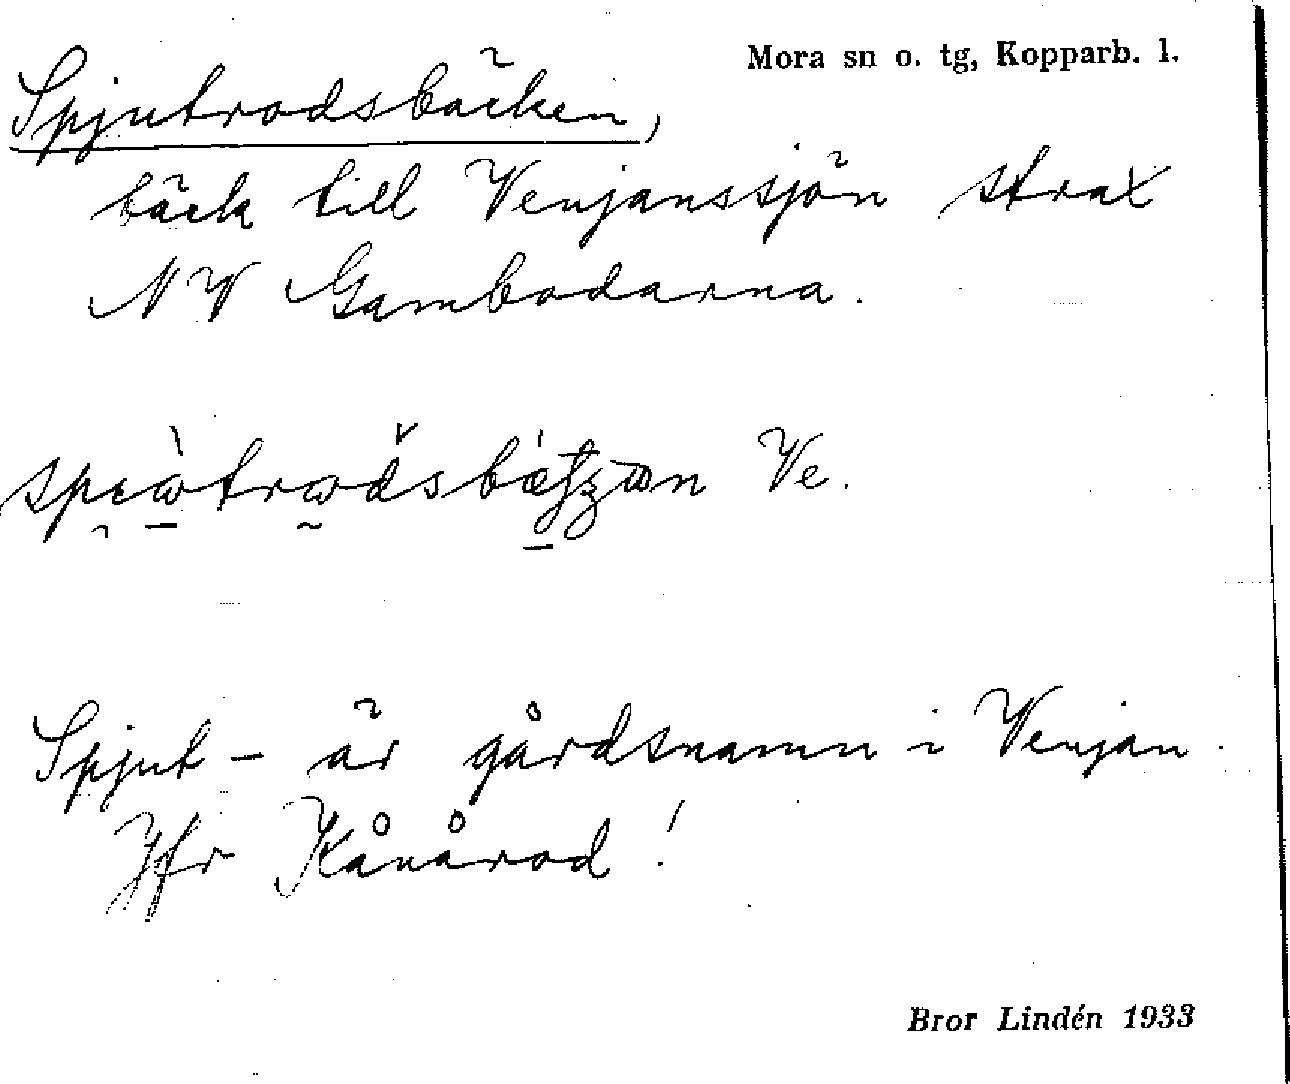 Mora sn o. tg, Kopparb. l.
Spjutrodsbäcken,
bäck till Venjanssjön strax
NV Gambodarna.
Ve.
Spjut- är gårdsnamn i Venjan.
Jfr Kånårod!
Bror Lindén 1933